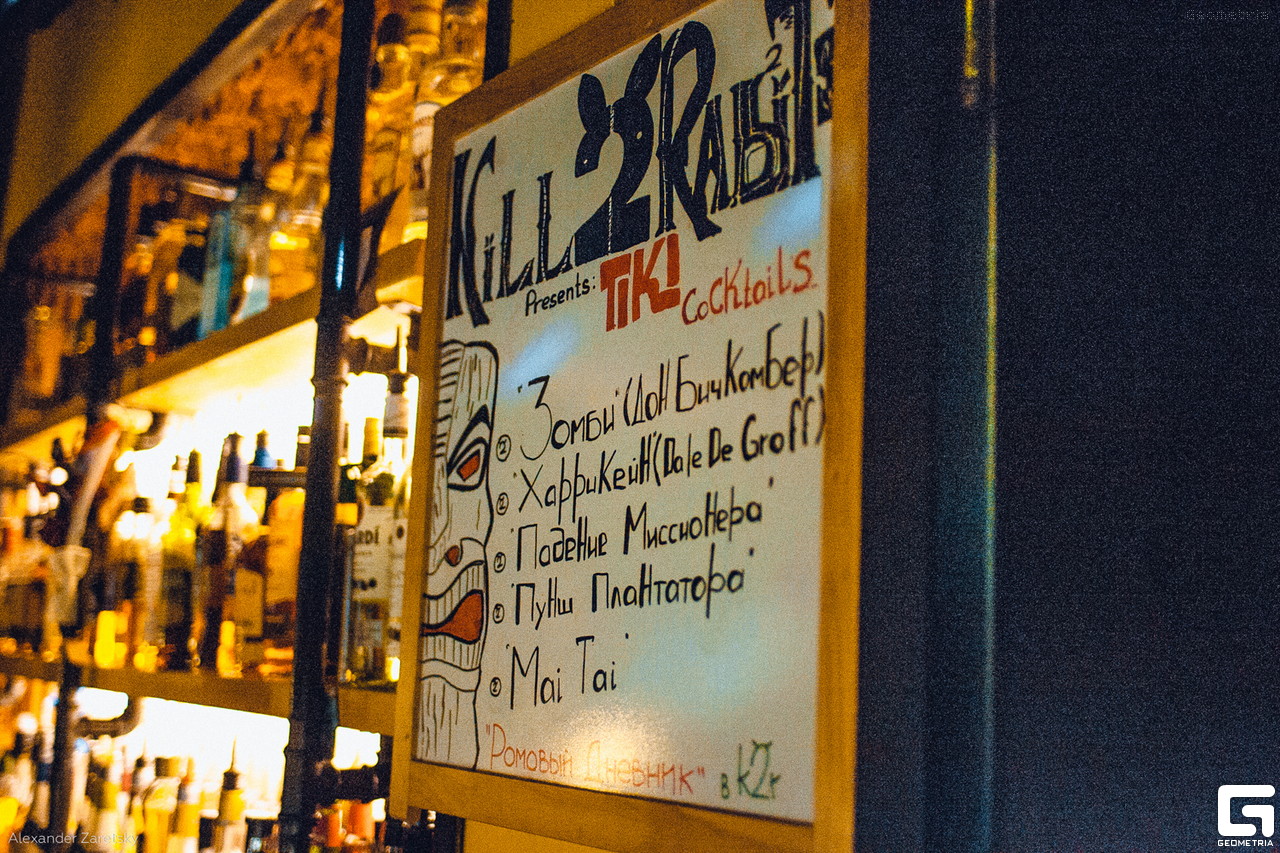 Geometria
Kill 2 Rabbits
Presents: TIKI Cocktails
"Зомби" (Дон Бич Комбер)
"Харрикейн" (Dale De Groff)
"Падение Миссионера"
"Пунш Плантатора"
"Mai Tai"
"Ромовый Дневник" в k2r
Alexander Zaretsky
GEOMETRIA